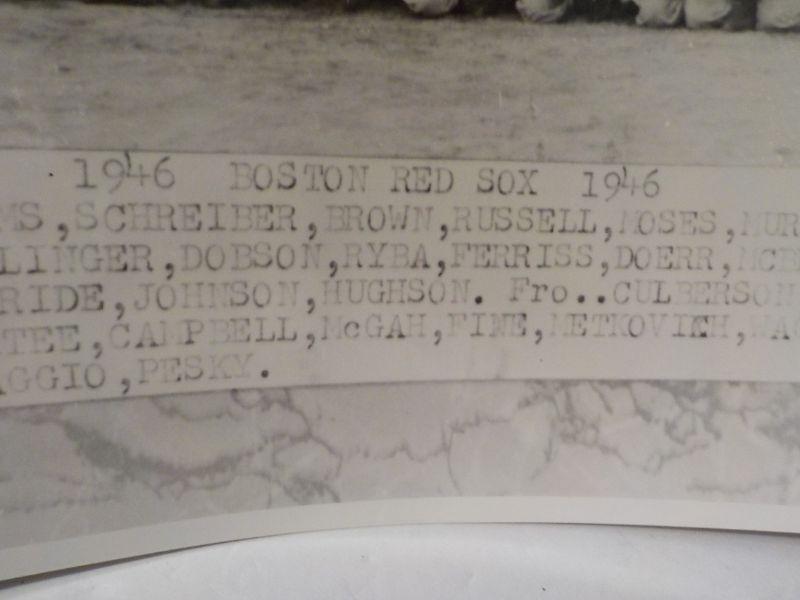 1946 BOSTON RED SOX 1946
MS,SCHREIBER,BROWN,RUSSELL,MOSES,MUR
LINGER,DOBSON,RYBA,FERRISS,DOERR,MCB
RIDE,JOHNSON,HUGHSON. Fro..CULBERSON
TEE,CAMPBELL,McGAH,FINE,METKOVICH,WAG
AGGIO,PESKY.